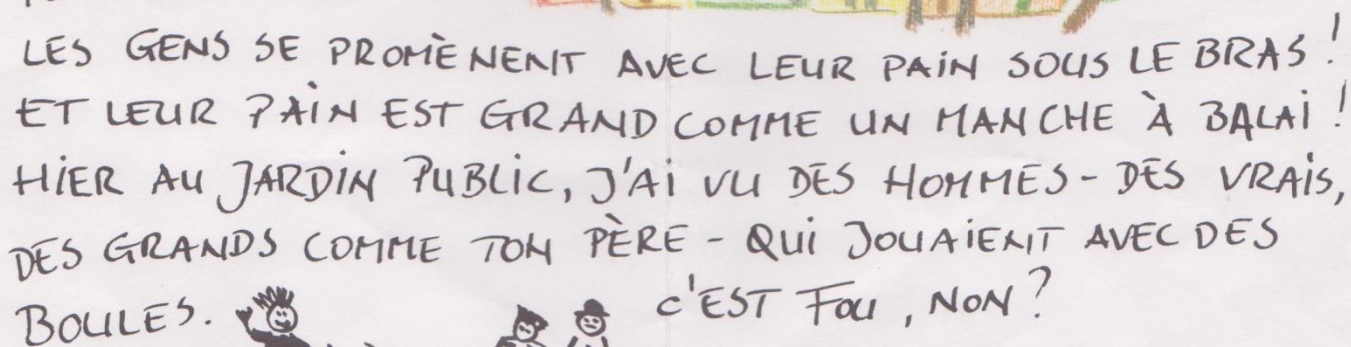 LES GENS SE PROMÈNENT AVEC LEUR PAIN SOUS LE BRAS!
ET LEUR PAIN EST GRAND COMME UN MANCHE À BALAI!
HIER AU JARDIN PUBLIC, J'AI VU DES HOMMES - DES VRAIS,
DES GRANDS COMME TON PÈRE - QUI JOUAIENT AVEC DES
BOULES. C'EST FOU, NON?